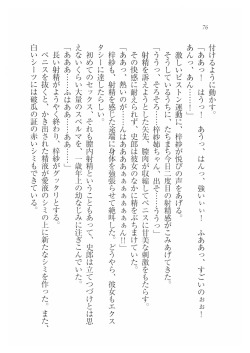 76
付けるように動かす。
「ああっ！ はうっ！ あうっ、はんっ。強いぃ！ ふああっ、すごいのぉお！
あんっ、あん……っ」
激しいピストン運動に、梓紗が悦びの声をあげる。
そうしているうちに、たちまち今日三度目の射精感がこみあげてきた。
「ううっ、そろそろ……出すよ、梓紗姉ちゃん！」
射精を訴えようとした矢先、膣肉が収縮してペニスに甘美な刺激をもたらす。
その快感に耐えられず、史郎は彼女のなかに精をぶちまけていた。
梓紗も、射精を感じた途端に全身を強張らせて絶叫した。どうやら、彼女もエクス
タシーに達したらしい。
初めてのセックス、それも膣内射精ということもあって、史郎は立てつづけとは思
えないくらい大量のスペルマを、
歳年上の幼なじみに注ぎこんでいた。
「あああ……ふはああ……」
射精がようやく終わり、梓紗がグッタリとする。
ペニスを抜くと、かき出された精液が愛液のシミの上に新たなシミを作った。また、
白いシーツには破瓜の証の赤いシミもできている。